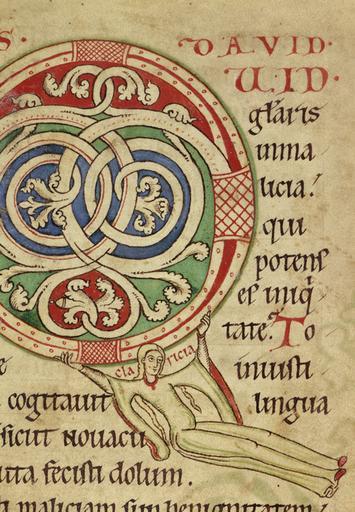 S. DAVID.
UID
glaris
inma
licia?
qui
potens
es iniq̄
tate. To
iniusti
CLA RICIA
cogitauit lingua
sicut nouacu
uta fecisti dolum.
maliciam sup benignitatem